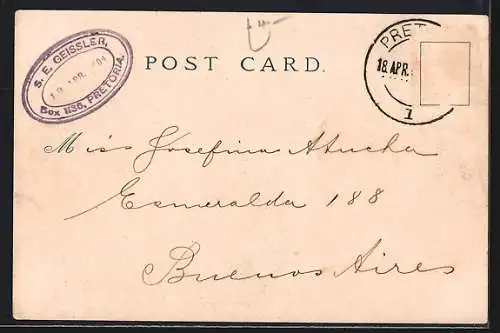 S. E. GEISSLER,
18 APR. 1904
Box 1136, PRETORIA.
POST CARD.
PRET
18 APR.
1
Miss Josefina Atucha
Esmeralda 188
Buenos Aires